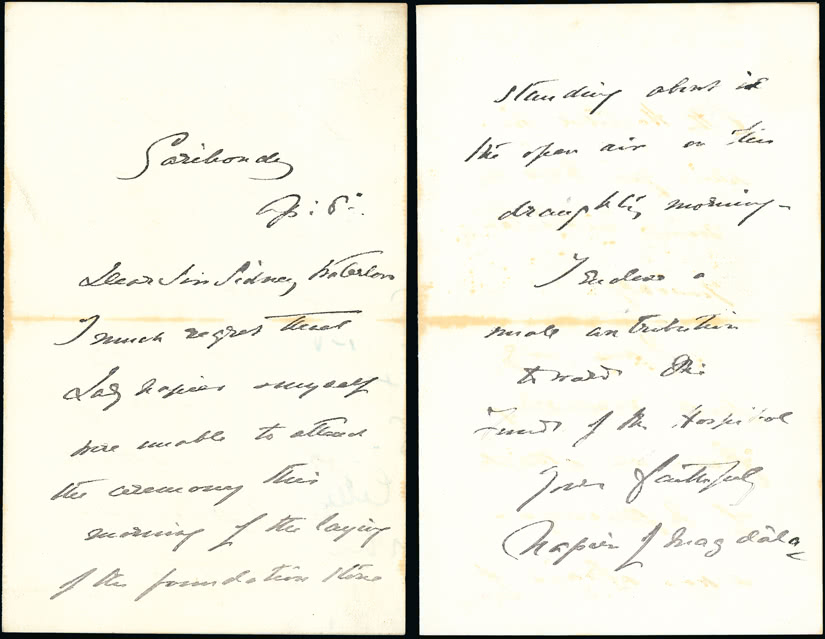 Ap: 8:
Dear Sir Sidney Waterlow
I much regret that
Lady Napier & myself
were unable to attend
the ceremony this
morning of the laying
of the foundation stone
standing about in
the open air on this
draughty morning -
I enclose a
small contribution
towards the
Funds of the Hospital
Yours faithfully
Napier of Magdala